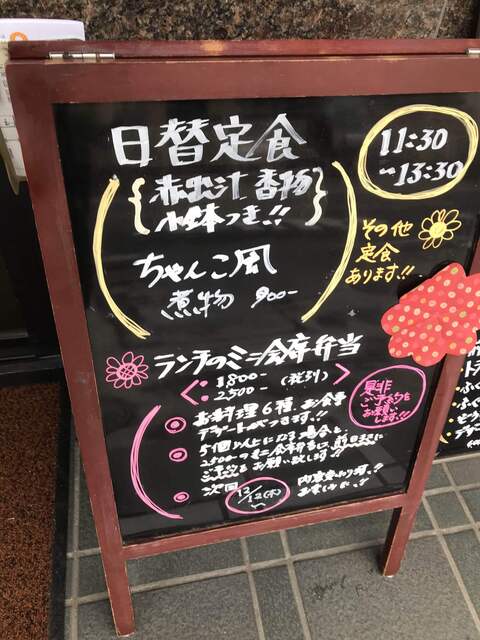 日替定食
11:30
～13:30
赤出汁 香物
小鉢つき!!
その他
定食
あります!!
ちゃんこ風
煮物 900-
ランチのミニ会席弁当
1800-
2500- (税別)
是非
ご予約を
お願い
します!!
お料理6種、お食事
デザートがつきます!!
5個以上になる場合と
2500-のミニ会席弁当は、前日までに
ご予約をお願い致します!!
次回 12/12(木)～
内容変わります!!
お楽しみに!!